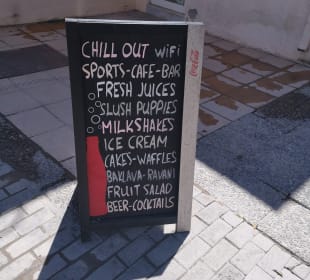 CHILL OUT WiFi
SPORTS-CAFE-BAR
FRESH JUICES
SLUSH PUPPIES
MILKSHAKES
ICE CREAM
CAKES-WAFFLES
BAKLAVA-RAVANI
FRUIT SALAD
BEER-COCKTAILS
Coca-Cola